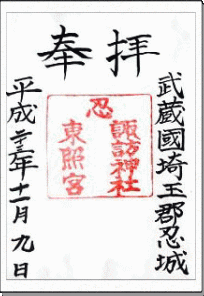 奉拝
武蔵國埼玉郡忍城
忍
諏訪神社
東照宮
平成二十三年十一月九日